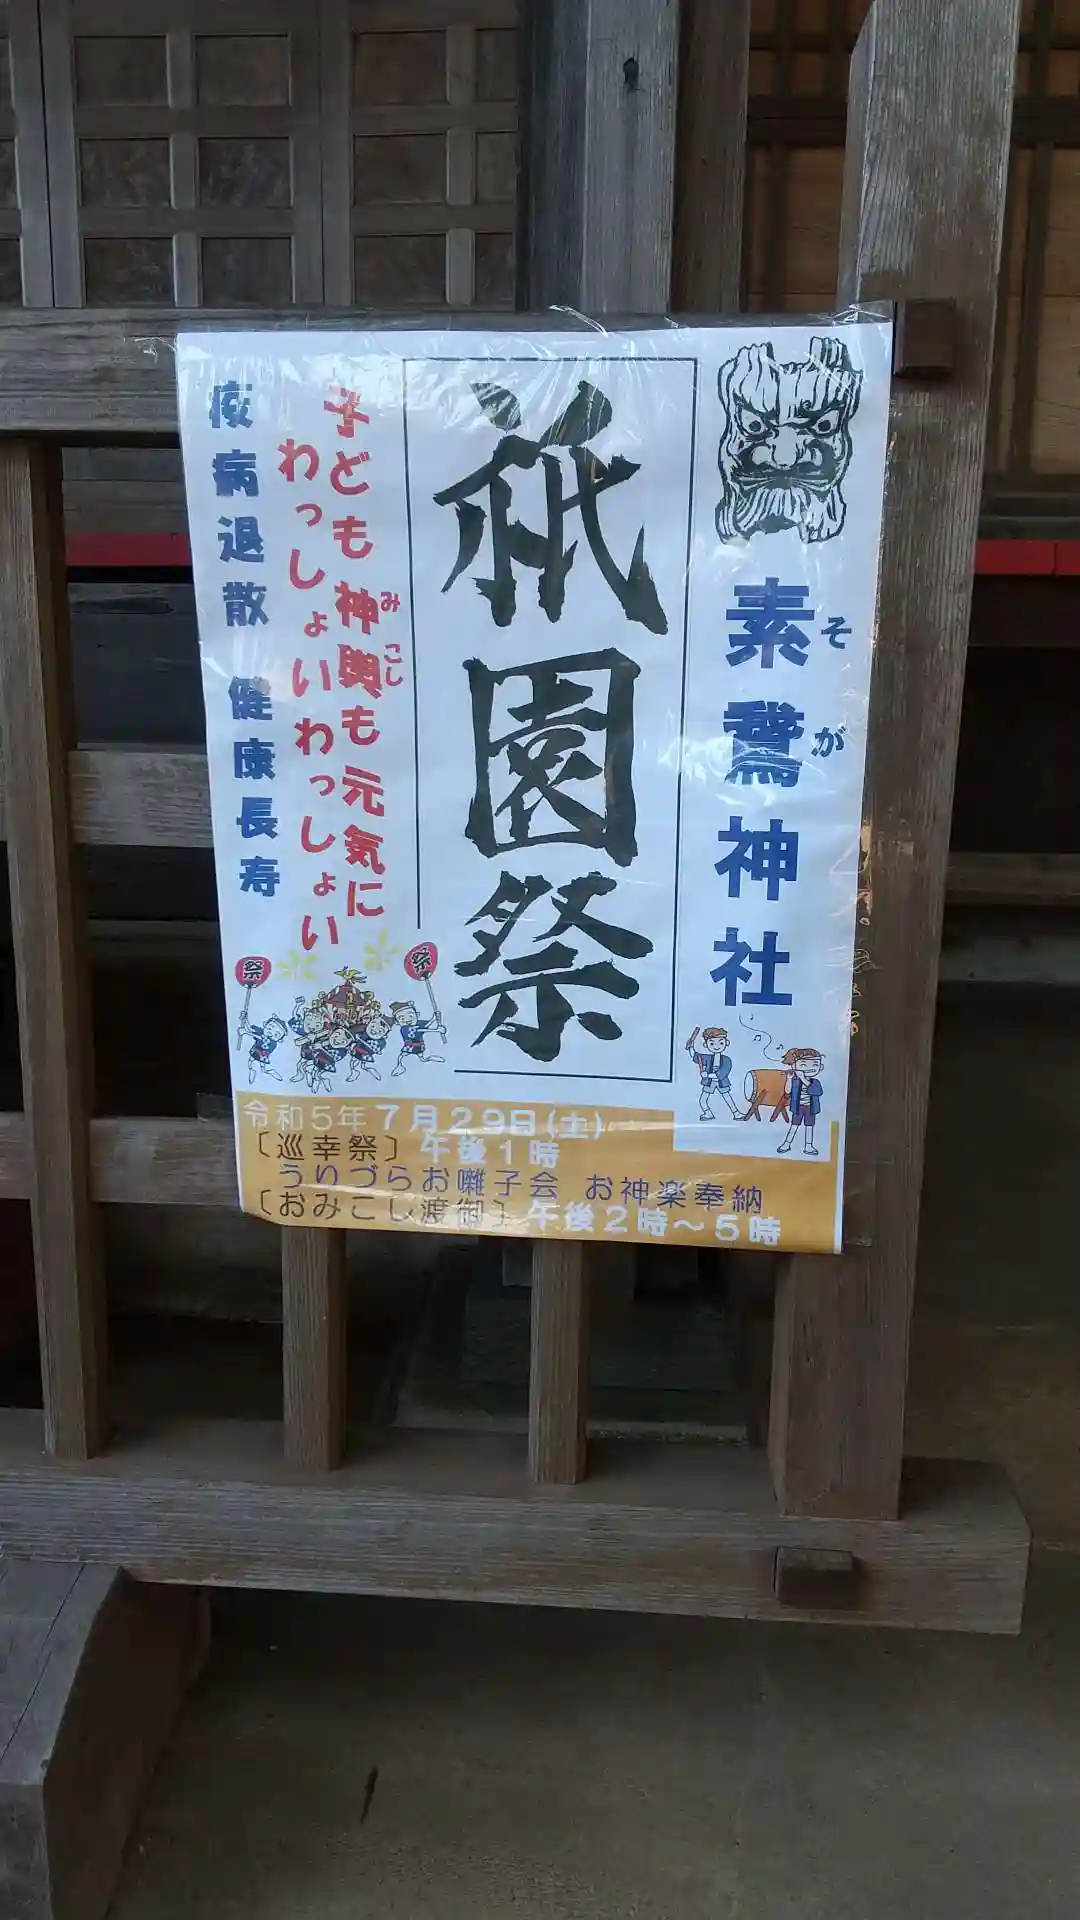 素鵞神社
そが
祇園祭
子ども神輿も元気に
みこし
わっしょいわっしょい
疫病退散 健康長寿
祭
祭
令和5年7月29日(土)
〔巡幸祭〕午後1時
うりづらお囃子会 お神楽奉納
〔おみこし渡御〕午後2時～5時